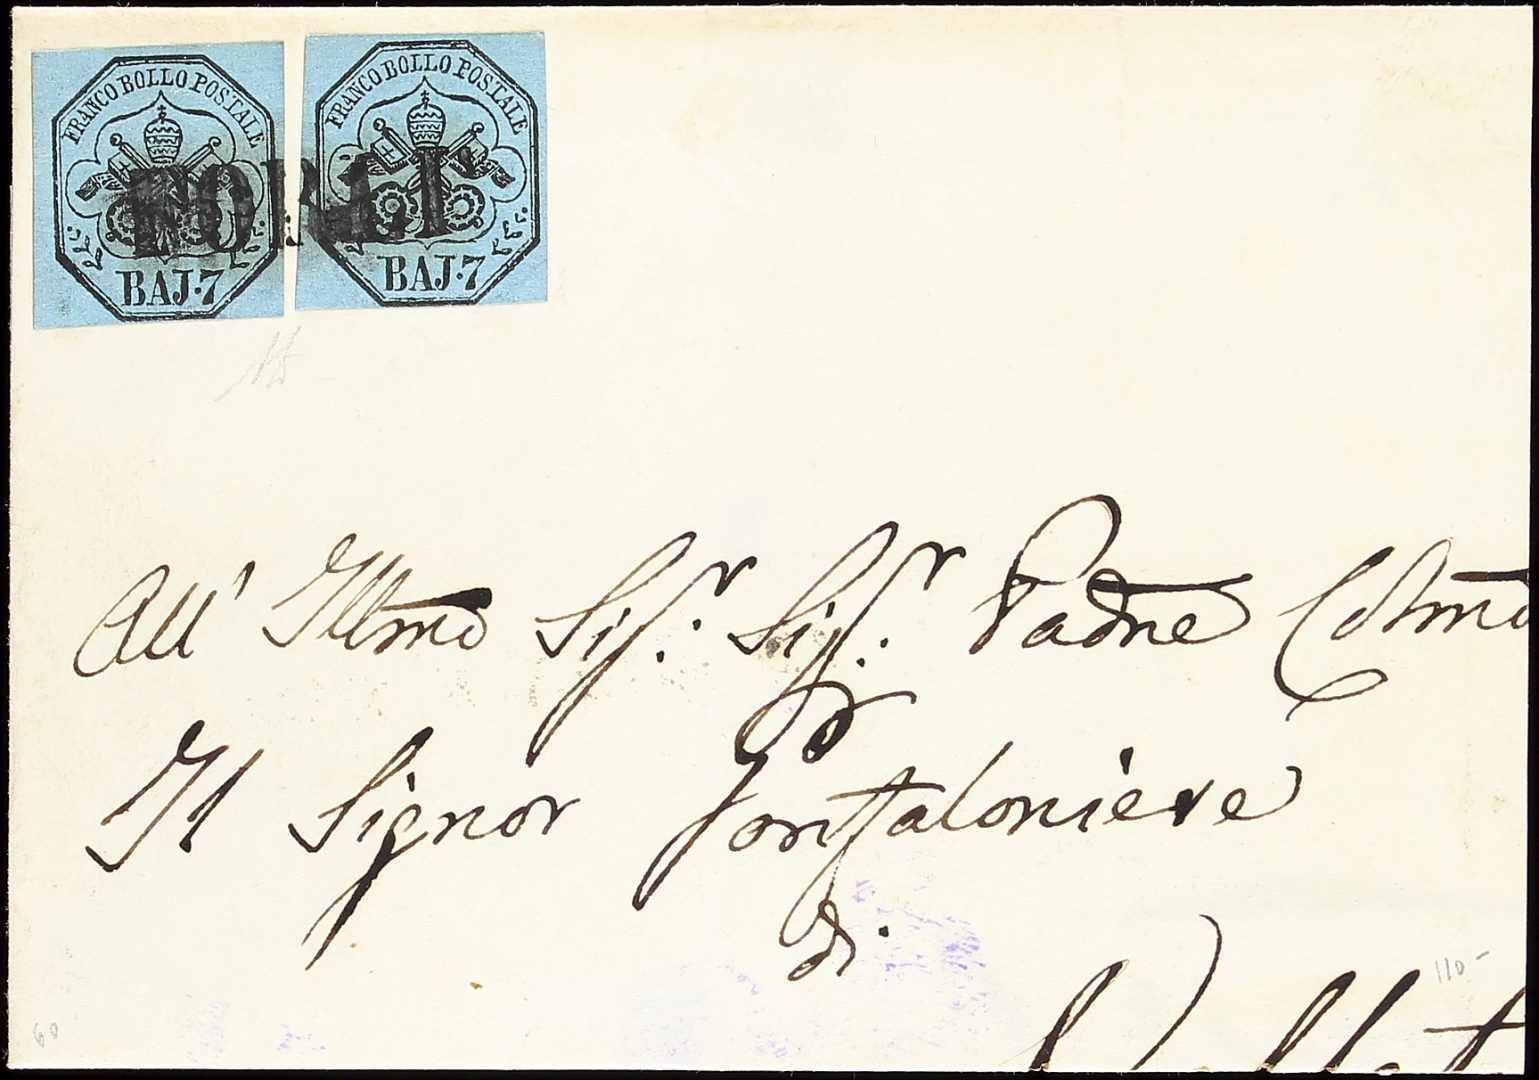 FRANCO BOLLO POSTALE
BAJ. 7
FRANCO BOLLO POSTALE
BAJ. 7
FORLI
All' Illmo Sigr. Sigr. Padne Colmo
Il Signor Gonfaloniere
di
110-
60